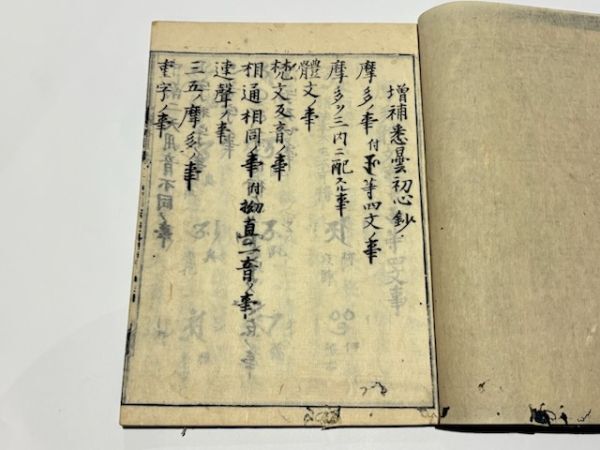 増補悉曇初心鈔
摩多ノ事 付 等四文ノ事
摩多ヲ三内ニ配スル事
體文ノ事
梵文反音ノ事
相通相同ノ事 付 拗直二音ノ事
連聲ノ事
三五ノ摩多ノ事
重字ノ事